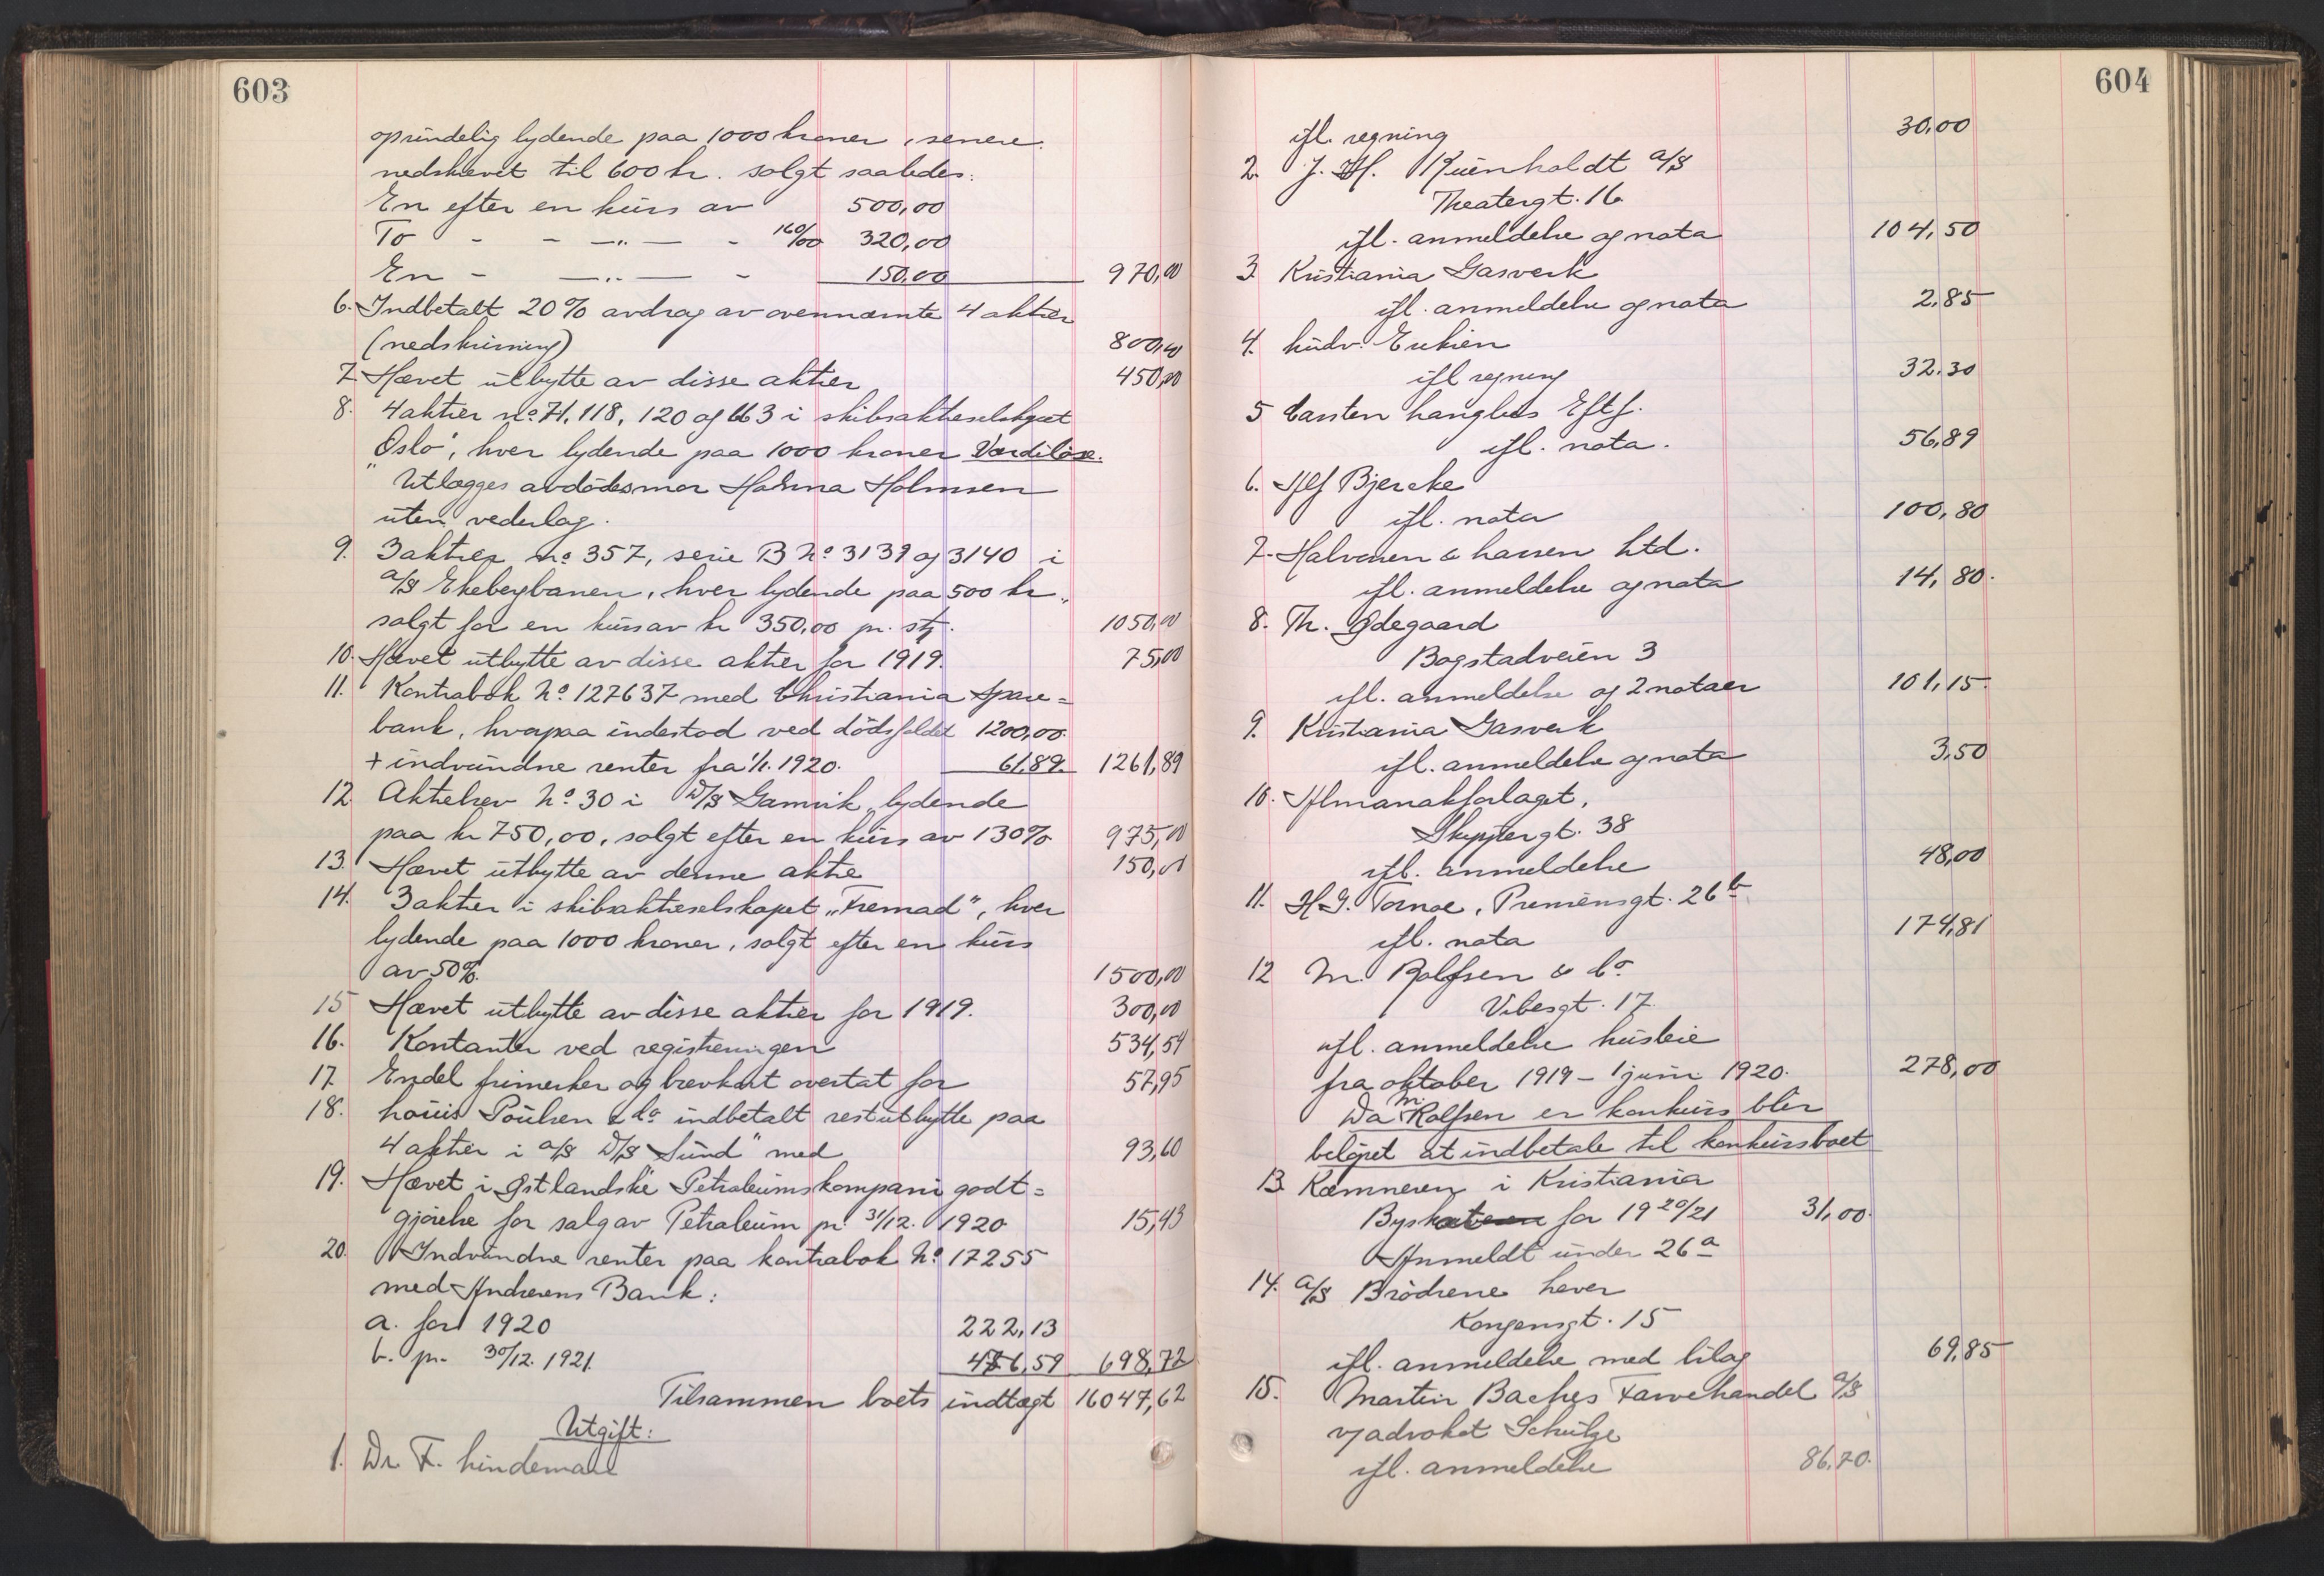 603
oprindelig lydende paa 1000 kroner, senere
nedskrevet til 600 kr. solgt saaledes:
En efter en kurs av 500,00
To - - —„— - 160/00 320,00
En - —„— - 150,00 970,00
6. Indbetalt 20% avdrag av ovennævnte 4 aktier
(nedskrivning) 800,00
7. Hævet utbytte av disse aktier 450,00
8. 4 aktier no. 71, 118, 120 og 163 i skibsaktieselskapet
„Oslo", hver lydende paa 1000 kroner Værdiløse.
Utlægges avdødes mor Halvina Holmsen
uten vederlag.
9. 3 aktier no. 357, serie B No. 3139 og 3140 i
a/s Ekebergbanen, hver lydende paa 500 kr.,
solgt for en kurs av kr 350,00 pr. stk. 1050,00
10. Hævet utbytte av disse aktier for 1919. 75,00
11. Kontrabok No. 127637 med Christiania Spare=
bank, hvorpaa indestod ved dødsfaldet 1200,00.
+ indvundne renter fra 1/1. 1920. 61,89. 1261,89
12. Aktiebrev No. 30 i D/S Gamvik, lydende
paa kr 750,00, solgt efter en kurs av 130% 975,00
13. Hævet utbytte av denne aktie 150,00
14. 3 aktier i skibsaktieselskapet „Fremad", hver
lydende paa 1000 kroner, solgt efter en kurs
av 50%. 1500,00
15 Hævet utbytte av disse aktier for 1919. 300,00
16. Kontanter ved registreringen 534,54
17. Endel frimerker og brevkort overtat for 57,95
18. Louis Poulsen & Co indbetalt restutbytte paa
4 aktier i a/s D/S „Sund" med 93,60
19. Hævet i Østlandske Petroleumskompani godt=
gjørelse for salg av Petroleum pr. 31/12. 1920 15,43
20. Indvundne renter paa kontrabok No. 17255
med Andresens Bank:
a. for 1920 222,13
b. pr. 30/12. 1921. 476,59 698,72
Tilsammen boets indtægt 16047,62
Utgift:
1. Dr. F. Lindeman
604
ifl. regning 30,00
2. J. H. Kuenholdt a/s
Theatergt. 16
ifl. anmeldelse og nota 104,50
3. Kristiania Gasverk
ifl. anmeldelse og nota 2,85
4. Ludv. Eriksen
ifl regning 32.30
5 Carsten Langlies Eftf.
ifl. nota. 56,89
6. Alf Bjercke
ifl. nota 100,80
7. Halvorsen & Larsen Ltd.
ifl. anmeldelse og nota 14,80.
8. Th. Ødegaard
Bogstadveien 3
ifl. anmeldelse og 2 notaer 101,15.
9. Kristiania Gasverk
ifl. anmeldelse og nota 3,50
10. Almanakforlaget,
Skippergt. 38
ifl. anmeldelse 48,00
11. H. G. Tornøe, Premiensgt. 26 b
ifl. nota 174,81
12 M. Rolfsen & Co.
Vibesgt. 17.
ifl. anmeldelse husleie
fra oktober 1919 – 1 juni 1920. 278,00
Da M. Rolfsen er konkurs blir
beløpet at indbetale til konkursboet
13. Kæmneren i Kristiania
Byskat for 1920/21 31,00.
Anmeldt under 26 a
14. a/s Brødrene Lever
Kongensgt. 15
ifl. anmeldelse med bilag 69,85
15. Martin Baches Farvehandel a/s
v/ advokat Schulze
ifl. anmeldelse 86,70.